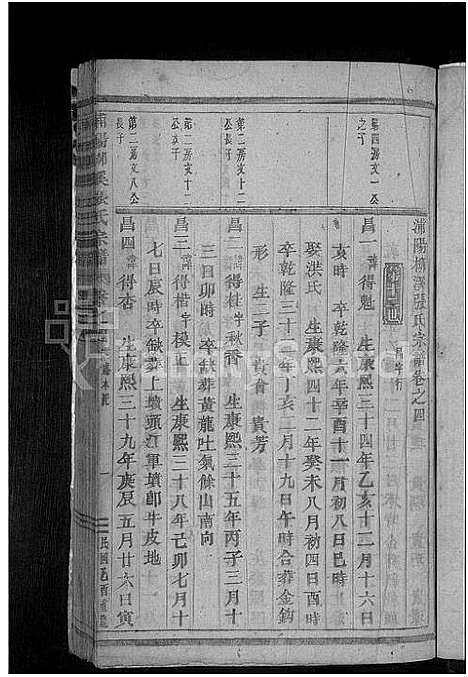 浦陽柳溪張氏宗譜卷之四
昌字行
第四房文一公之子
昌一 諱得魁 生康熙三十四年乙亥十二月十六日
亥時 卒乾隆 年辛酉十一月初八日巳時
娶洪氏 生康熙四十二年癸未八月初四日酉時
卒乾隆三十二年丁亥二月十九日午時合葬金鈎
形 生二子 貴會 貴芳
第二房文十二公長子
昌二 諱得桂 字秋香 生康熙三十五年丙子三月十
三日卯時 卒缺葬黃龍吐氣餘山南向
第二房文十二公次子
昌三 諱得楷 字模正 生康熙三十八年己卯七月十
七日辰時卒缺葬上墳頭江軍墳郎牛皮地
第二房文八公長子
昌四 諱得杏 生康熙三十九年庚辰五月廿六日寅
浦陽柳溪張氏宗譜 卷之
一
民國乙酉重修